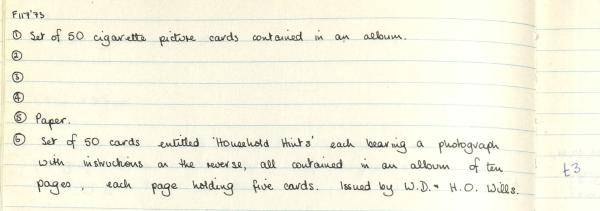 F117'73
① Set of 50 cigarette picture cards contained in an album.
②
③
④
⑤ Paper.
⑥ Set of 50 cards entitled 'Household Hints' each bearing a photograph
with instructions on the reverse, all contained in an album of ten
pages, each page holding five cards. Issued by W.D. & H.O. Wills.
£3